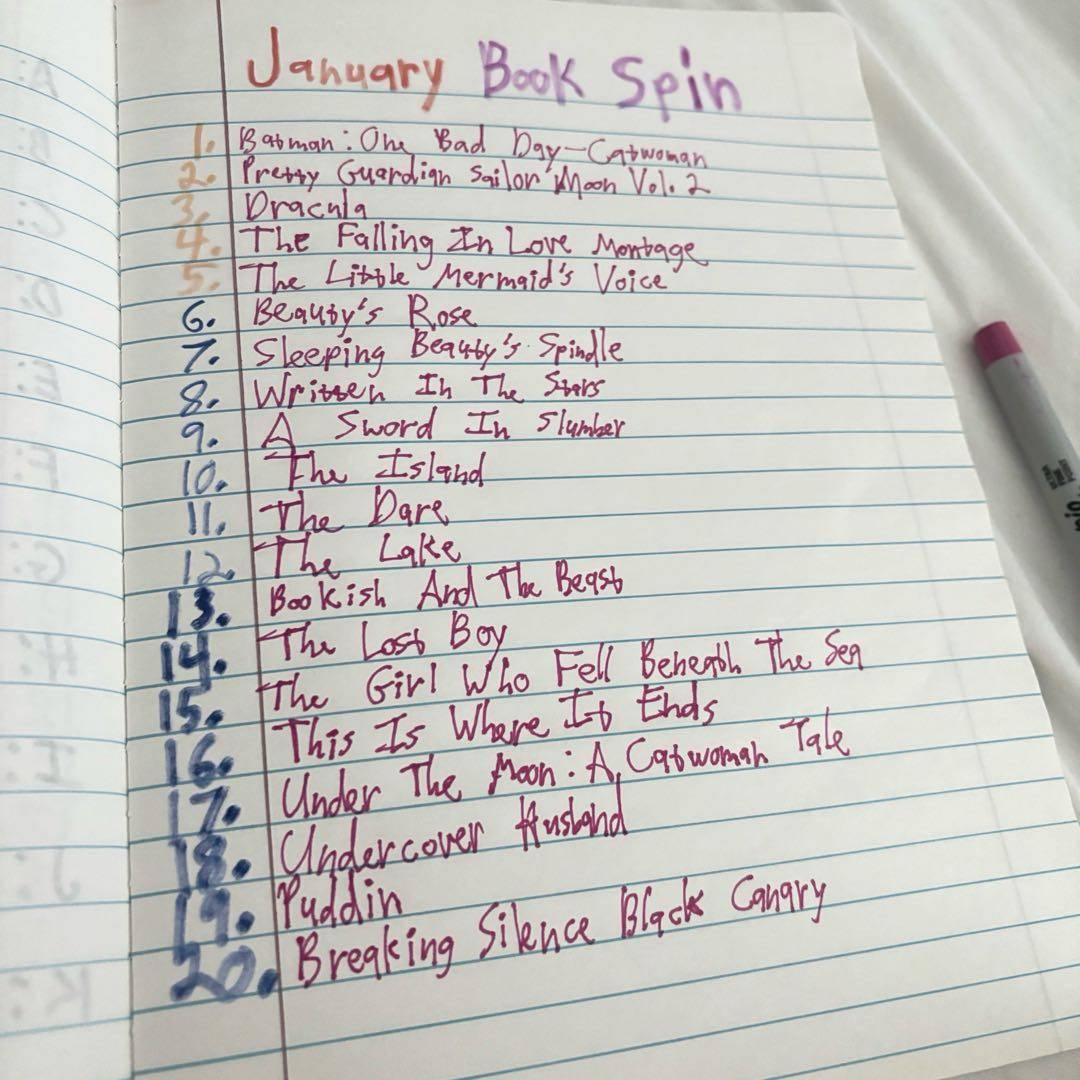 January Book Spin
1. Batman: One Bad Day-Catwoman
2. Pretty Guardian Sailor Moon Vol. 2
3. Dracula
4. The Falling In Love Montage
5. The Little Mermaid's Voice
6. Beauty's Rose
7. Sleeping Beauty's Spindle
8. Written In The Stars
9. A Sword In Slumber
10. The Island
11. The Dare
12. The Lake
13. Bookish And The Beast
14. The Lost Boy
15. The Girl Who Fell Beneath The Sea
16. This Is Where It Ends
17. Under The Moon: A Catwoman Tale
18. Undercover Husband
19. Puddin
20. Breaking Silence Black Canary